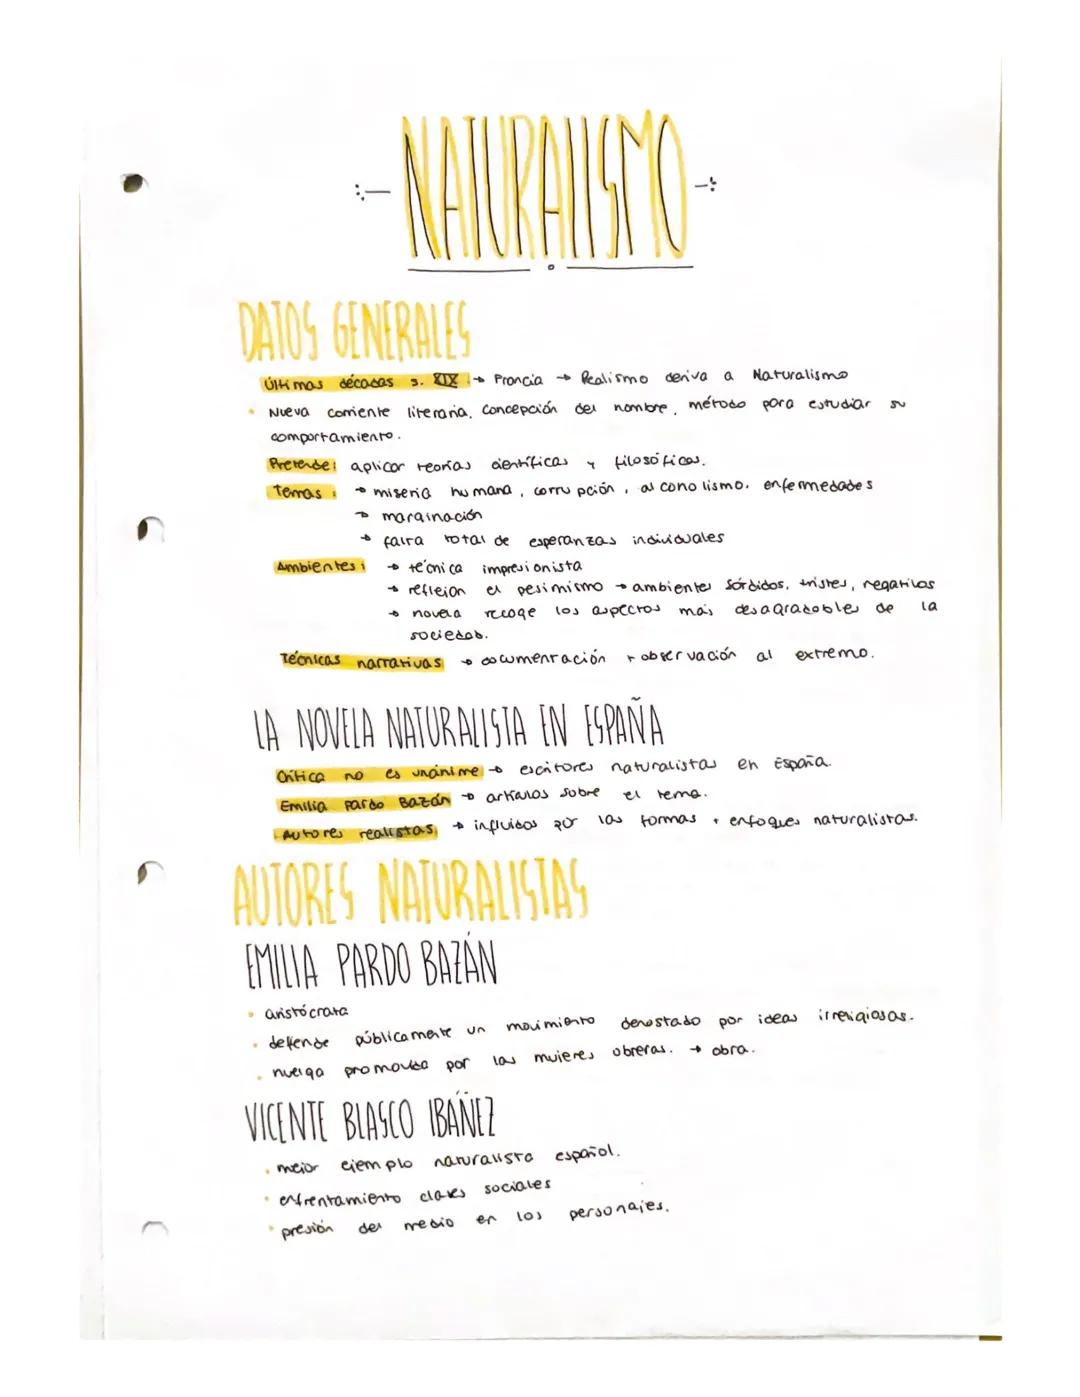 NATURALISMO
DATOS GENERALES
Últimas décadas s. XIX → Francia → Realismo deriva a Naturalismo
• Nueva corriente literaria. Concepción del hombre, método para estudiar su
comportamiento.
Pretende: aplicar teorías científicas y filosóficas.
Temas: → miseria humana, corrupción, alcoholismo, enfermedades
→ marginación
→ falta total de esperanzas individuales
Ambientes: → técnica impresionista
→ reflejan el pesimismo → ambientes sórdidos, tristes, negativos
→ novela recoge los aspectos más desagradables de la
sociedad.
Técnicas narrativas → documentación + observación al extremo.
LA NOVELA NATURALISTA EN ESPAÑA
Crítica no es unánime → escritores naturalistas en España.
Emilia Pardo Bazán → artículos sobre el tema.
Autores realistas → influidos por las formas + enfoques naturalistas.
AUTORES NATURALISTAS
EMILIA PARDO BAZÁN
• aristócrata
• defende públicamente un movimiento denostado por ideas irreligiosas.
• huelga promovida por las mujeres obreras. → obra.
VICENTE BLASCO IBÁÑEZ
• mejor ejemplo naturalista español.
• enfrentamiento clases sociales
• presión del medio en los personajes.